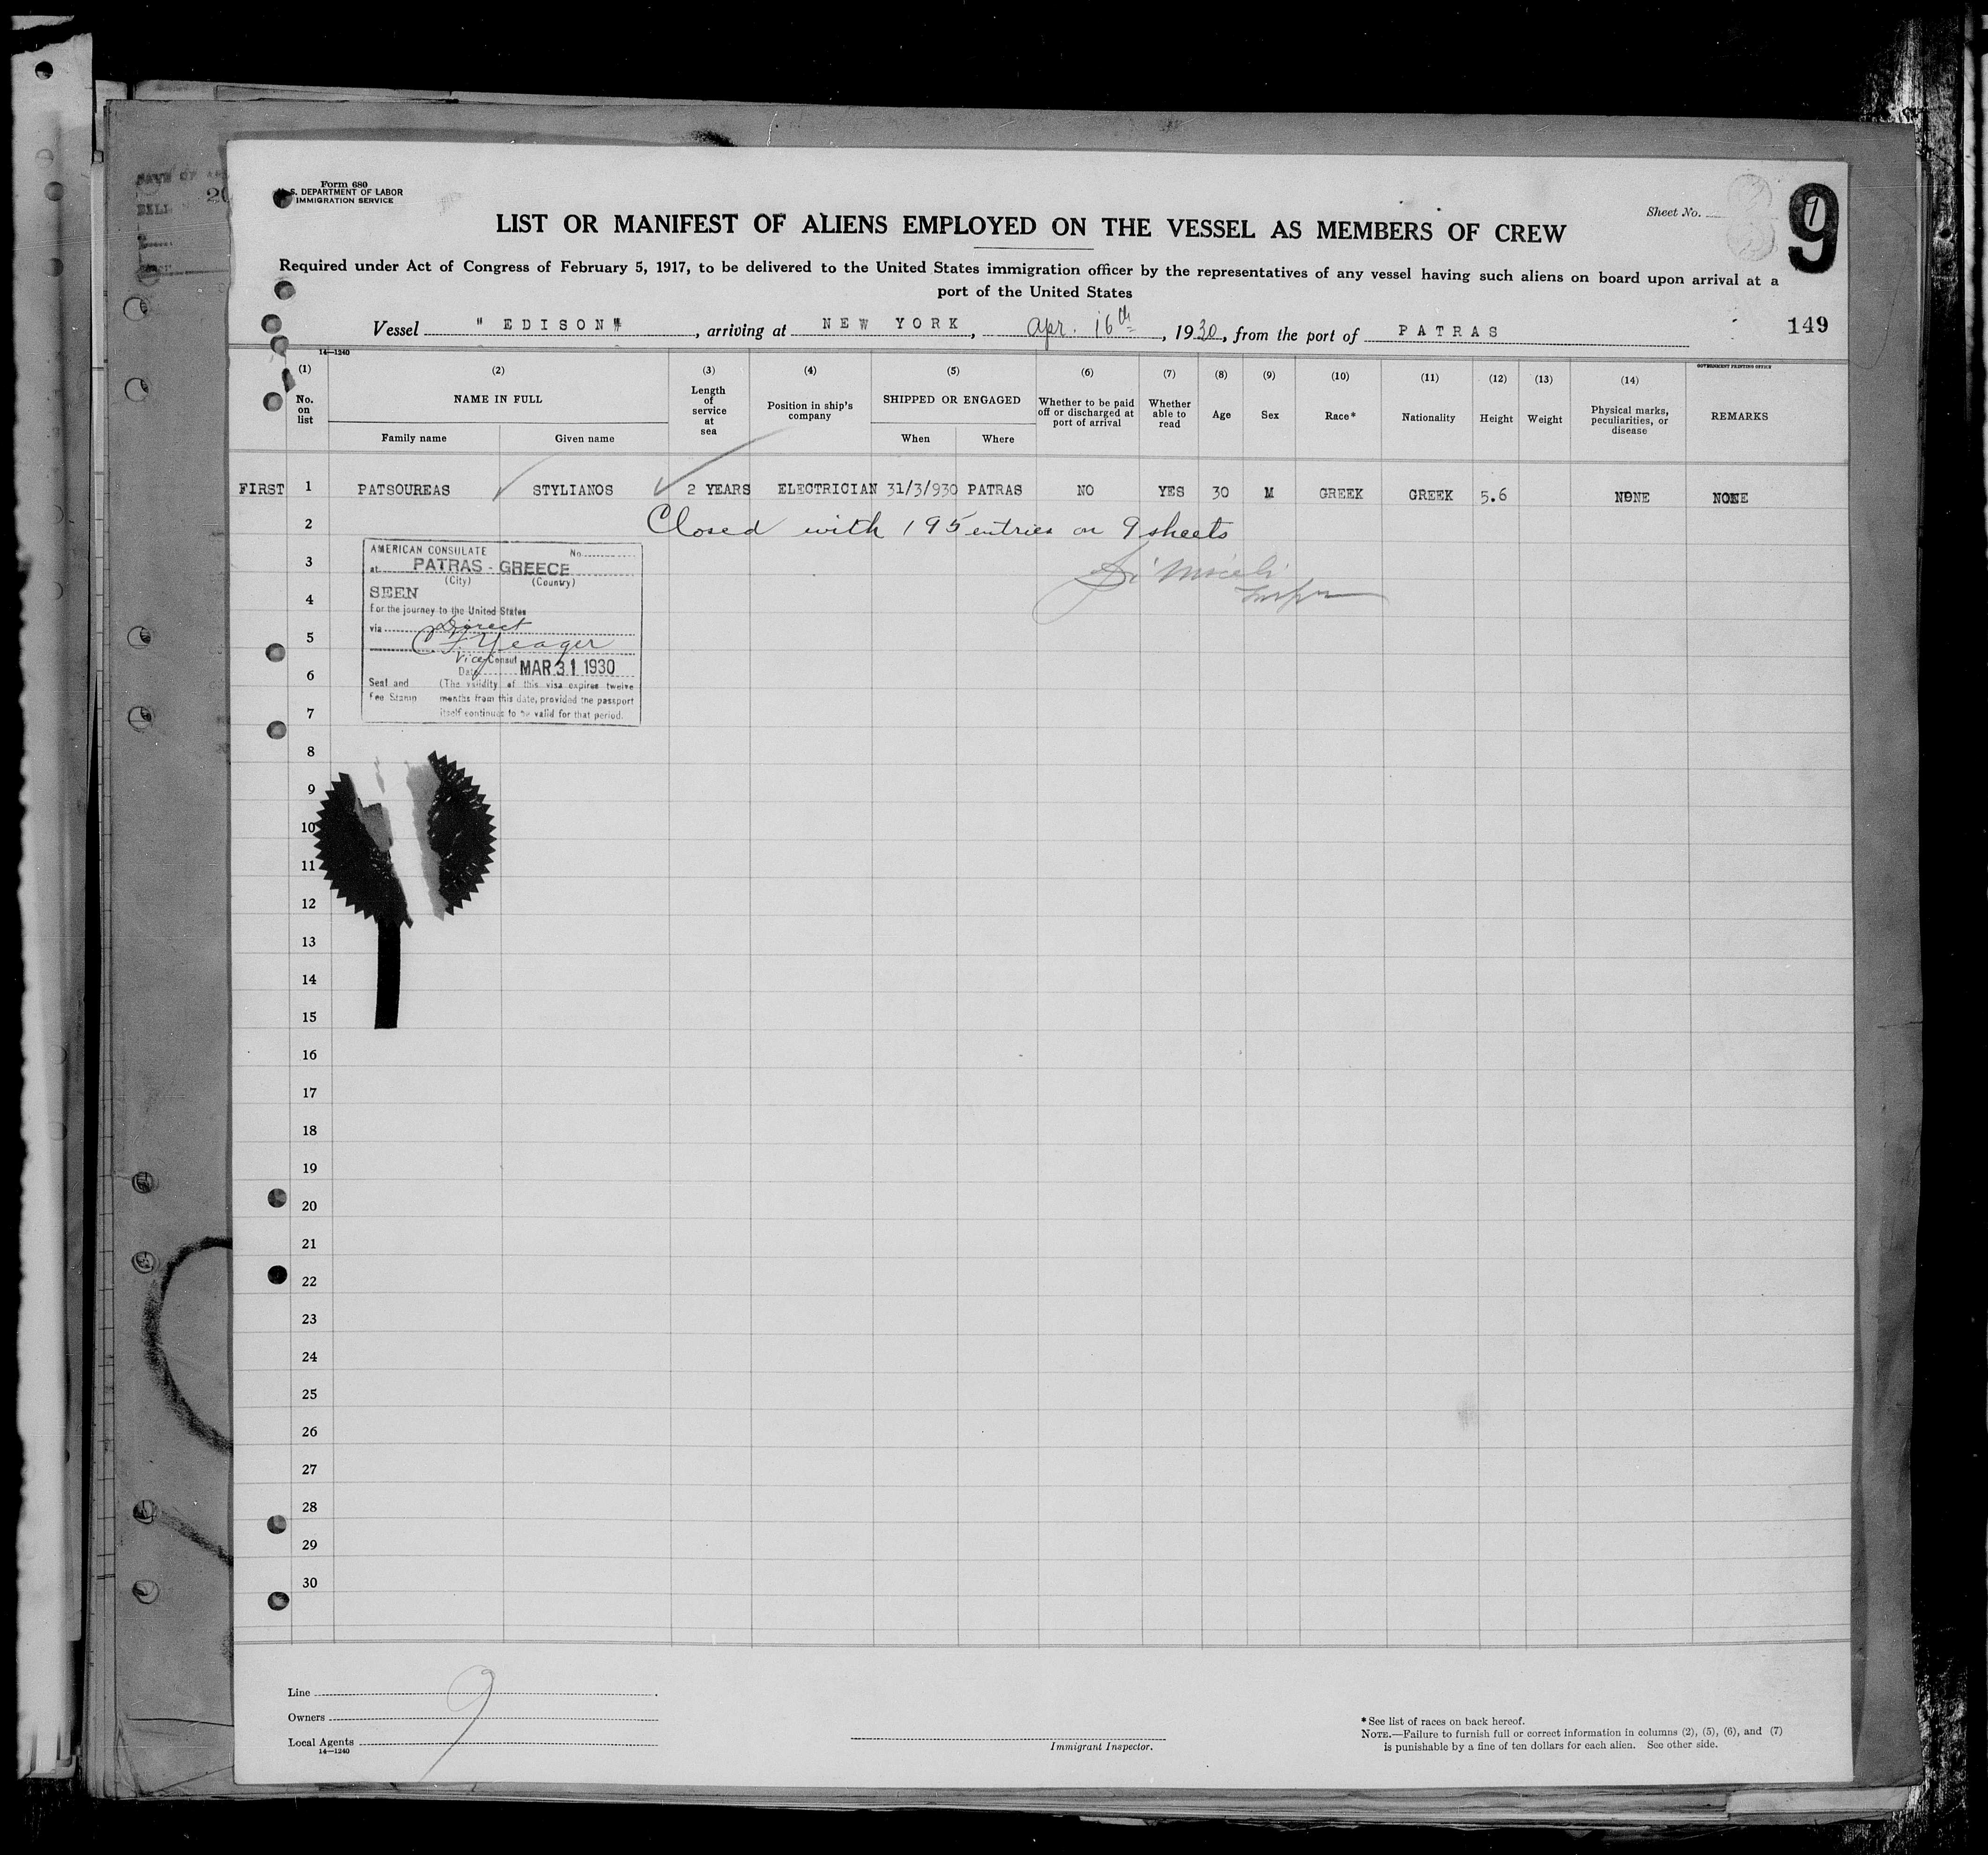 Form 680
U. S. DEPARTMENT OF LABOR
IMMIGRATION SERVICE
Sheet No.
9
LIST OR MANIFEST OF ALIENS EMPLOYED ON THE VESSEL AS MEMBERS OF CREW
Required under Act of Congress of February 5, 1917, to be delivered to the United States immigration officer by the representatives of any vessel having such aliens on board upon arrival at a
port of the United States
Vessel "EDISON", arriving at NEW YORK, Apr. 16th, 1930, from the port of PATRAS
149
14—1240
GOVERNMENT PRINTING OFFICE
(1) (2) (3) (4) (5) (6) (7) (8) (9) (10) (11) (12) (13) (14)
No. on list NAME IN FULL Length of service at sea Position in ship's company SHIPPED OR ENGAGED Whether to be paid off or discharged at port of arrival Whether able to read Age Sex Race* Nationality Height Weight Physical marks, peculiarities, or disease REMARKS
Family name Given name When Where
FIRST 1 PATSOUREAS STYLIANOS 2 YEARS ELECTRICIAN 31/3/930 PATRAS NO YES 30 M GREEK GREEK 5.6 NONE NONE
2 Closed with 195 entries on 9 sheets
AMERICAN CONSULATE No.
at PATRAS - GREECE
(City) (Country)
SEEN
For the journey to the United States
via Direct
Yeager
Vice Consul
Date MAR 31 1930
Seal and (The validity of this visa expires twelve
Fee Stamp months from this date, provided the passport
itself continues to be valid for that period.
3
4
5
6
7
8
9
10
11
12
13
14
15
16
17
18
19
20
21
22
23
24
25
26
27
28
29
30
Line
9
Owners
Local Agents
14—1240
Immigrant Inspector.
*See list of races on back hereof.
NOTE.—Failure to furnish full or correct information in columns (2), (5), (6), and (7)
is punishable by a fine of ten dollars for each alien. See other side.